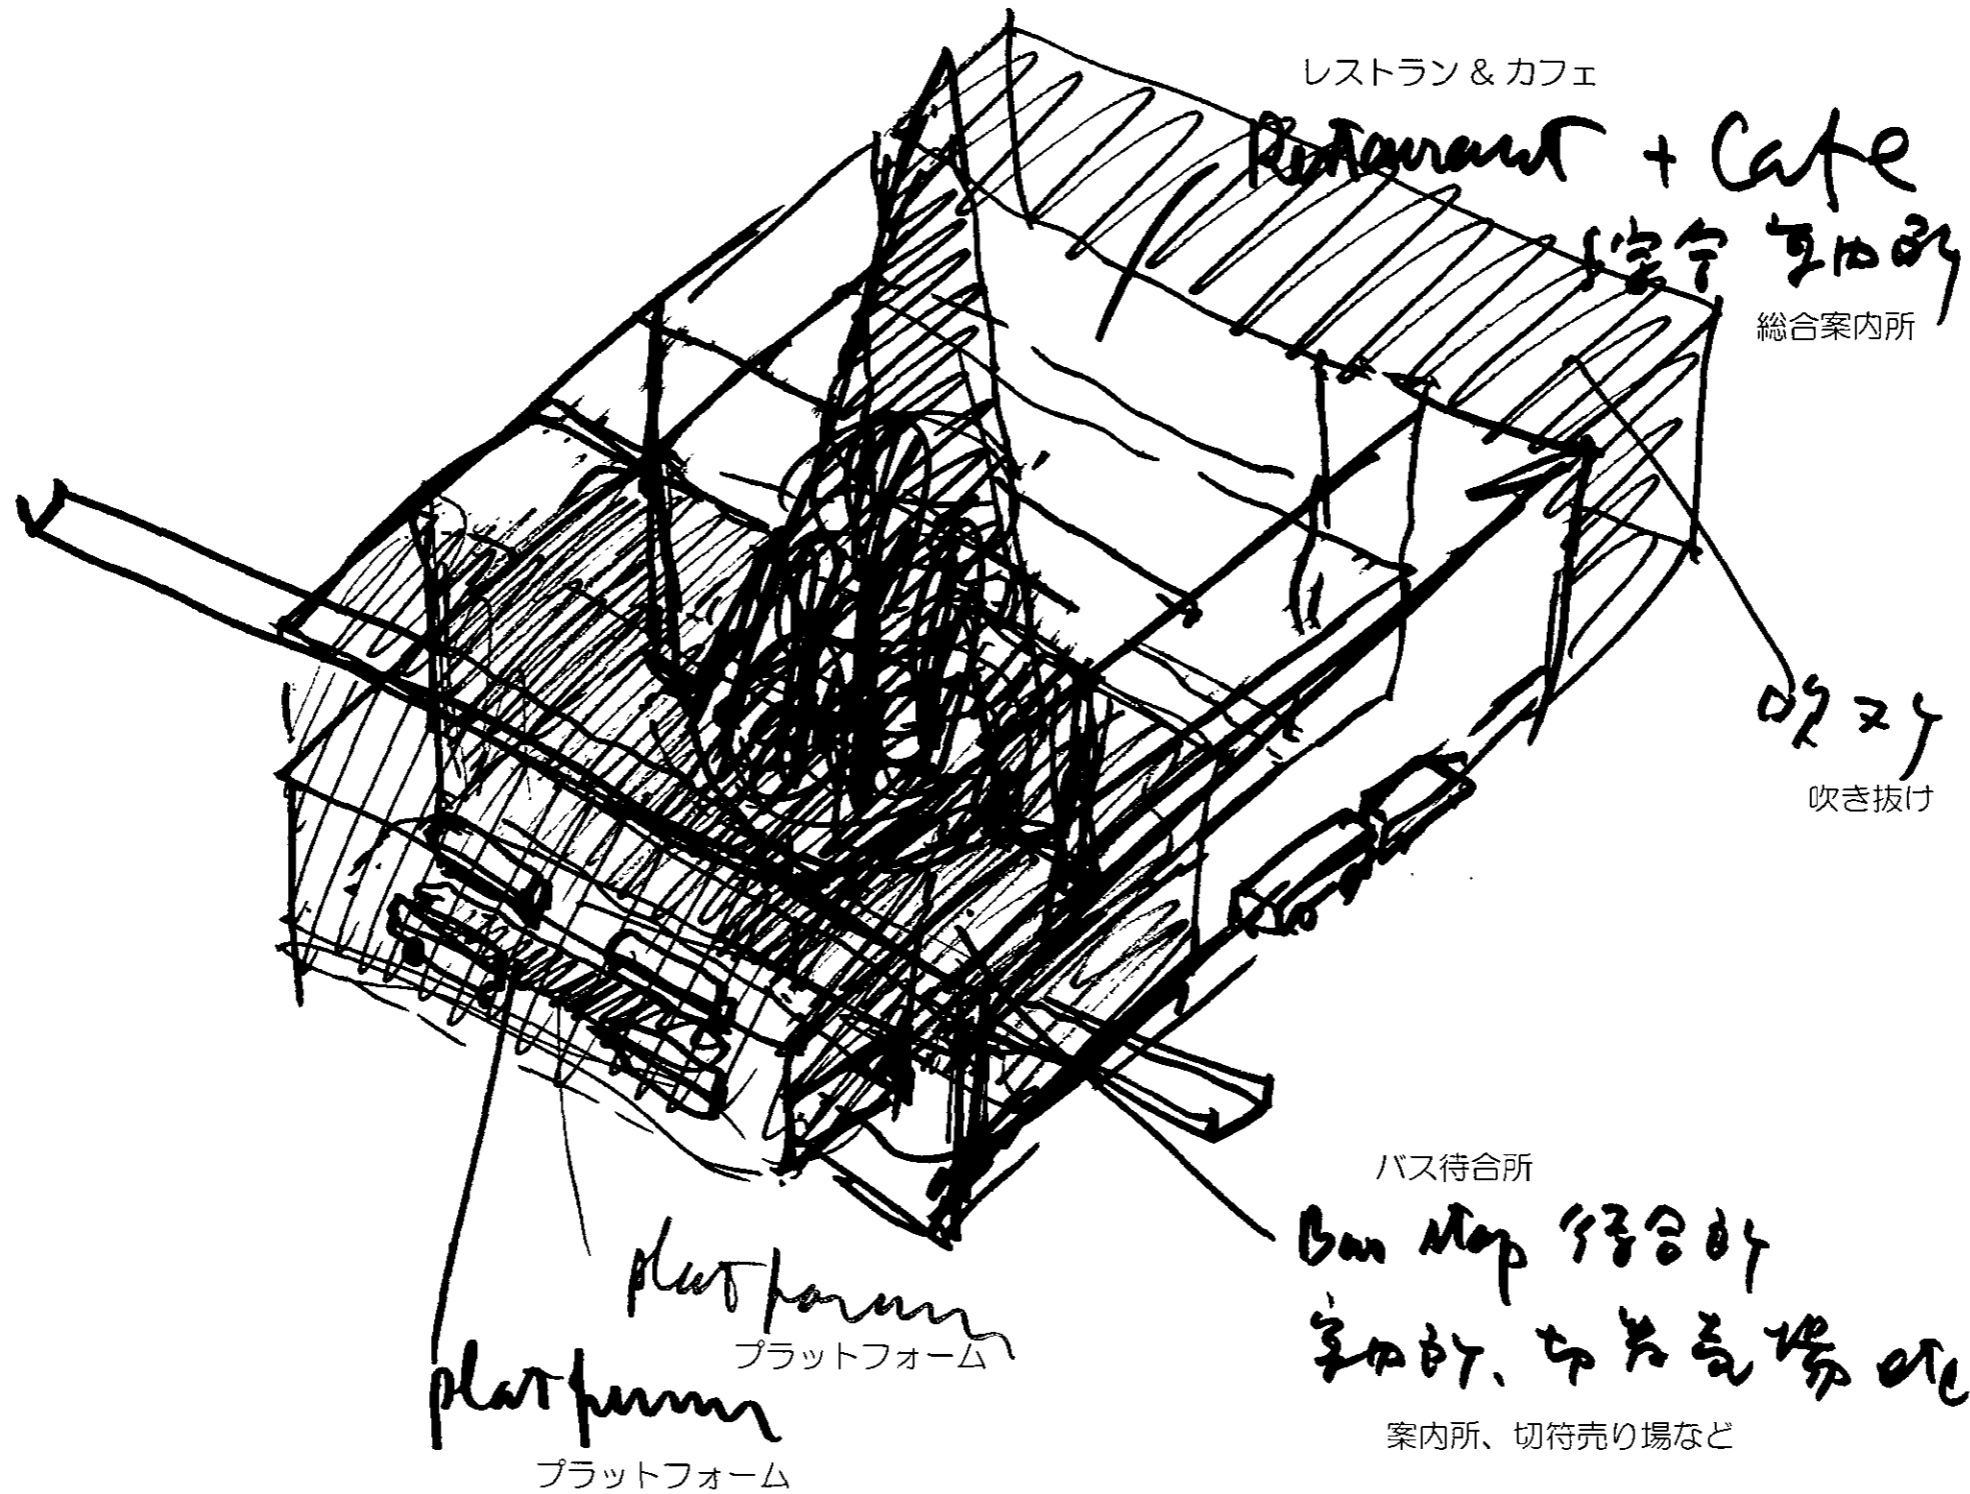 レストラン & カフェ
Restaurant + Cafe
総合案内所
総合案内所
吹又ケ
吹き抜け
バス待合所
Bus stop 待合所
案内所、切符売場 etc
案内所、切符売り場など
platform
プラットフォーム
platform
プラットフォーム